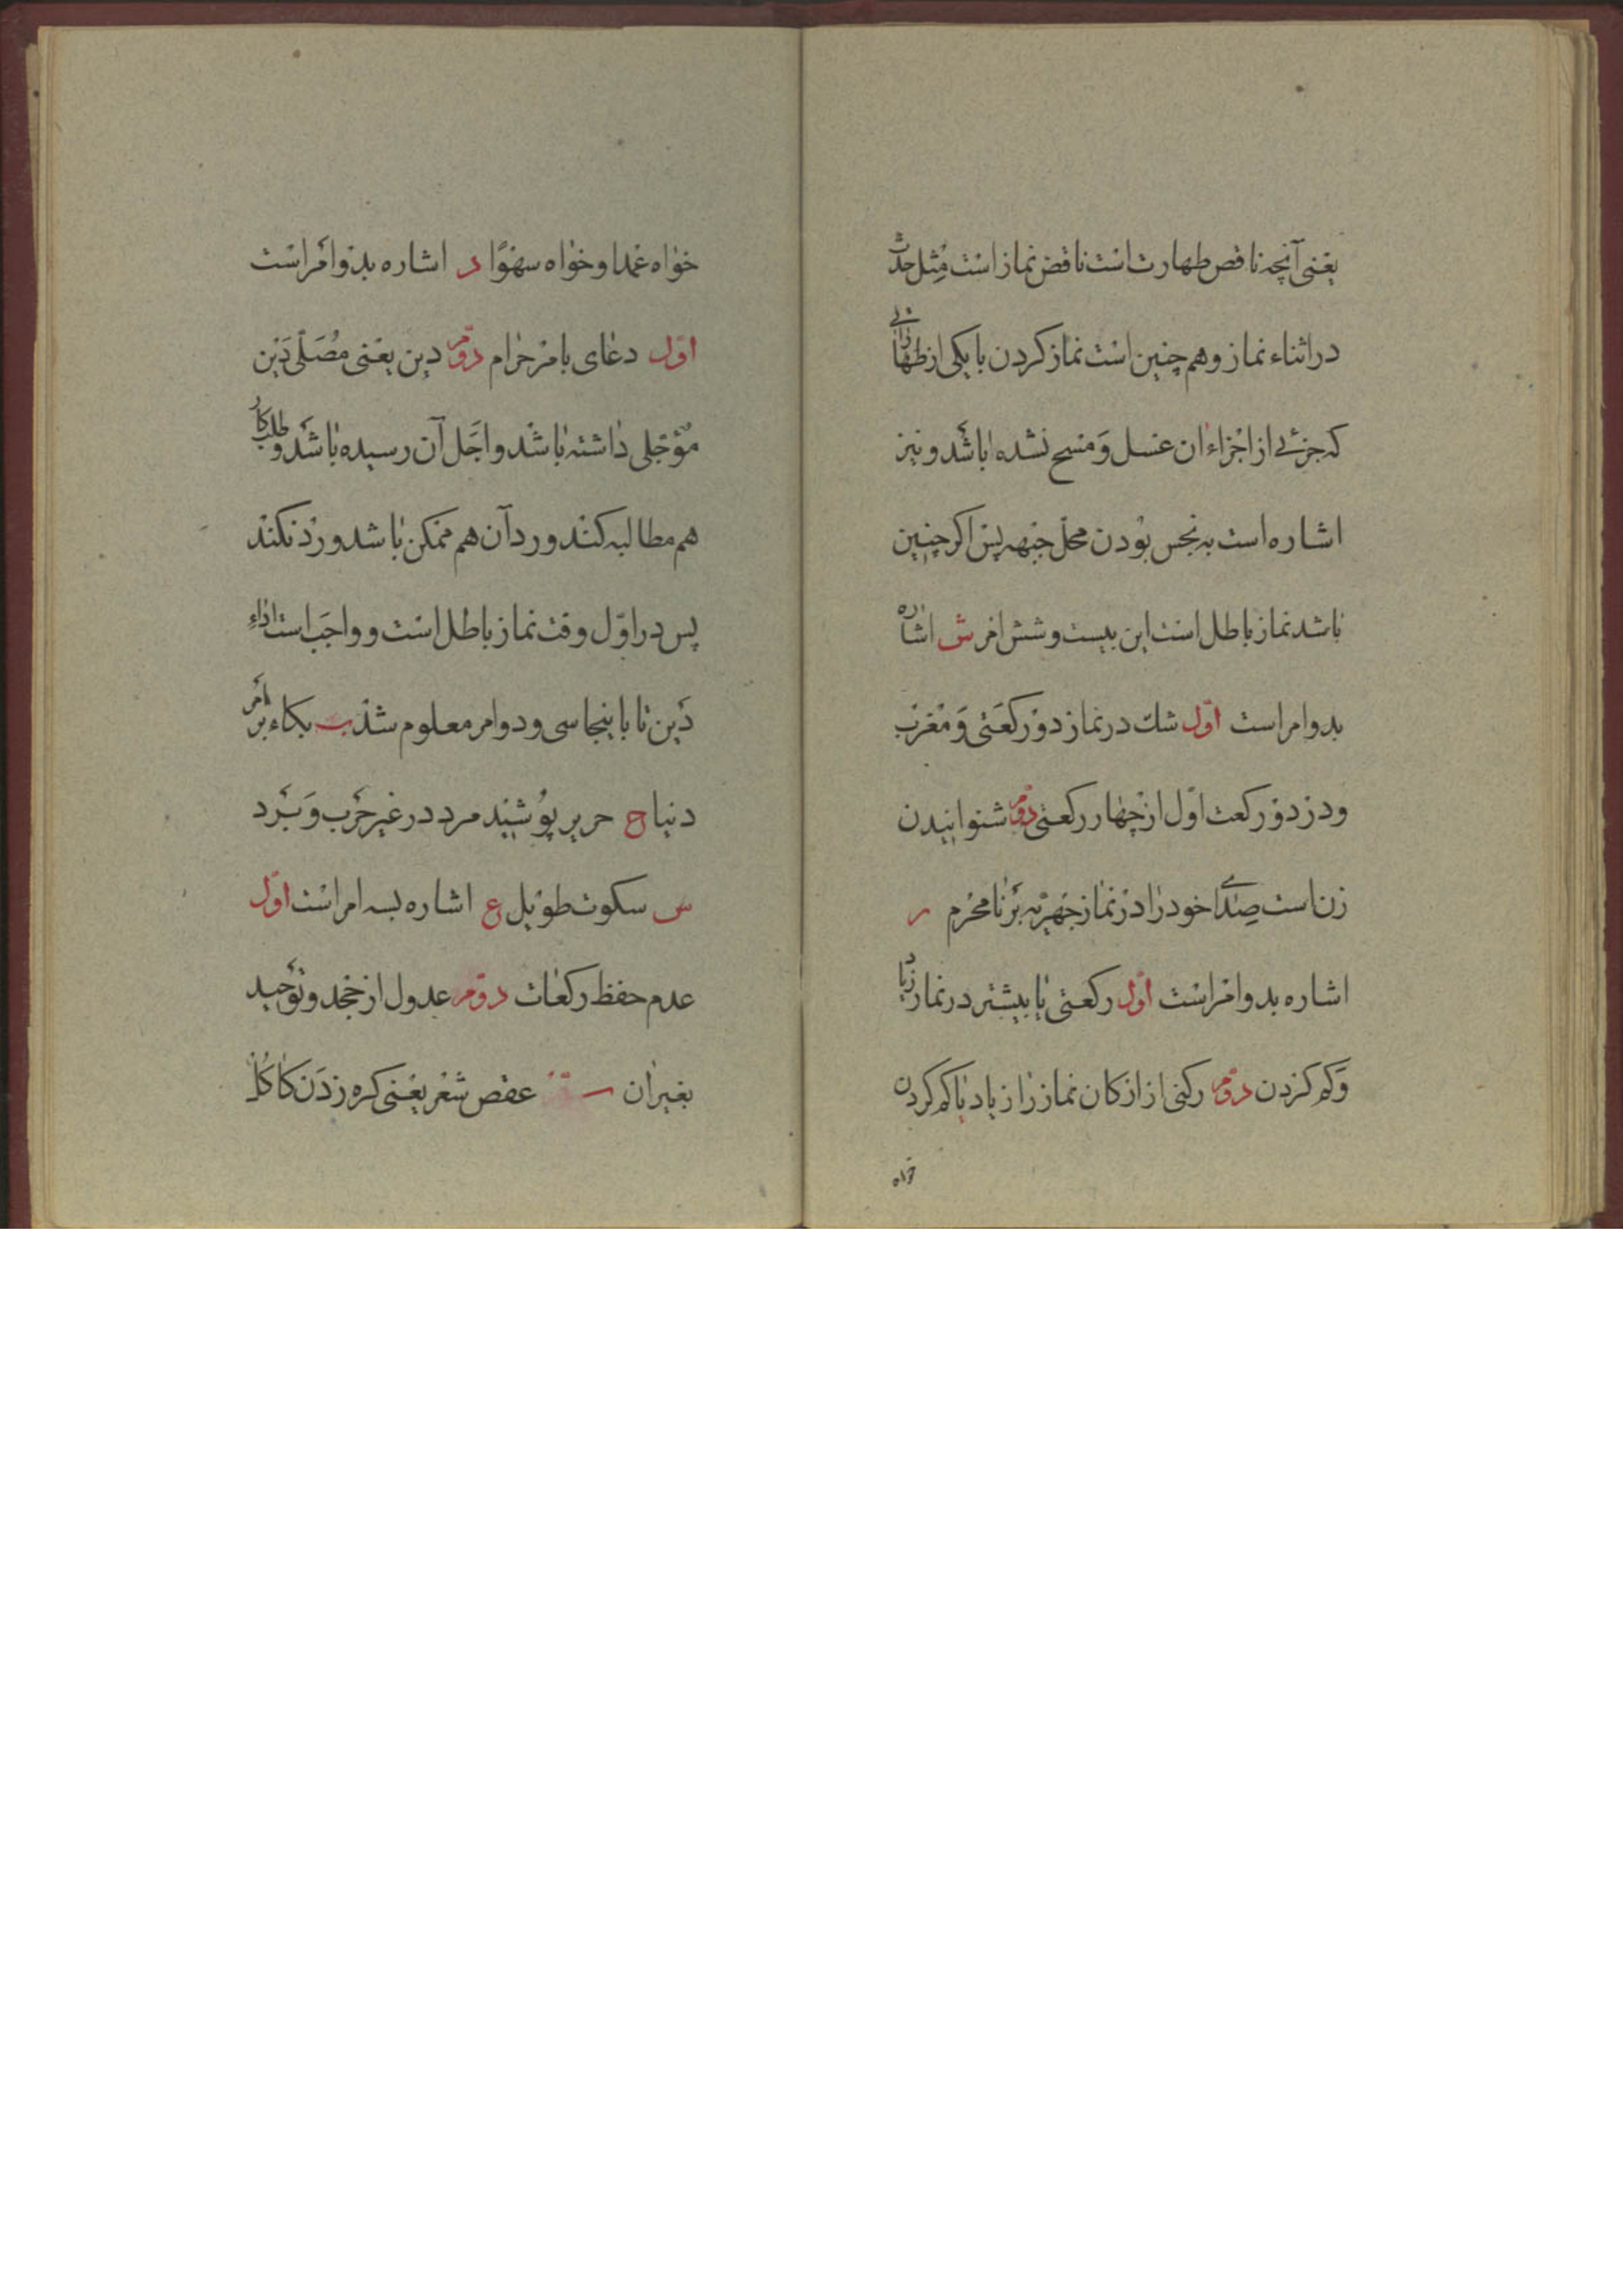 یعنی آنچه ناقص طهارت است ناقض نماز است مثل حدث
در اثناء نماز و همچنین است نماز کردن با یکی از طهاراتی
که جزئی از اجزاء ان غسل و مسح نشده باشد و نیز
اشاره است به نجس بودن محل جبهه پس اکر چنین
باشد نماز باطل است این بیست و شش امر ش اشاره
بدو امر است اول شک در نماز دو رکعتی و مغرب
و در دو رکعت اول از چهار رکعتی دوم شنوانیدن
زن است صدای خود را در نماز جهریه بر نامحرم ر
اشاره بدو امر است اول رکعتی یا بیشتر در نماز زیاد
و کم کردن دوم رکنی از ارکان نماز را زیاد یا کم کردن
خواه
خواه عمدا و خواه سهوًا د اشاره بدو امر است
اول دعای بامر حرام دوم دین یعنی مُصَلّی دَین
مؤجلی داشته باشد و اجَل آن رسیده باشد و طلبکار
هم مطالبه کند و رد آن هم ممکن باشد و رد نکند
پس در اوّل وقت نماز باطل است و واجب است اداء
دَین تا باینجا سی و دو امر معلوم شد ب بکاء بر امر
دنیا ح حریر پوشیند مرد در غیر حَرب و بَرد
س سکوت طویل ع اشاره بسه امر است اول
عدم حفظ رکعات دوم عدول از جحد و توحید
بغیر ان عقص شعر یعنی کره زدن کاکل